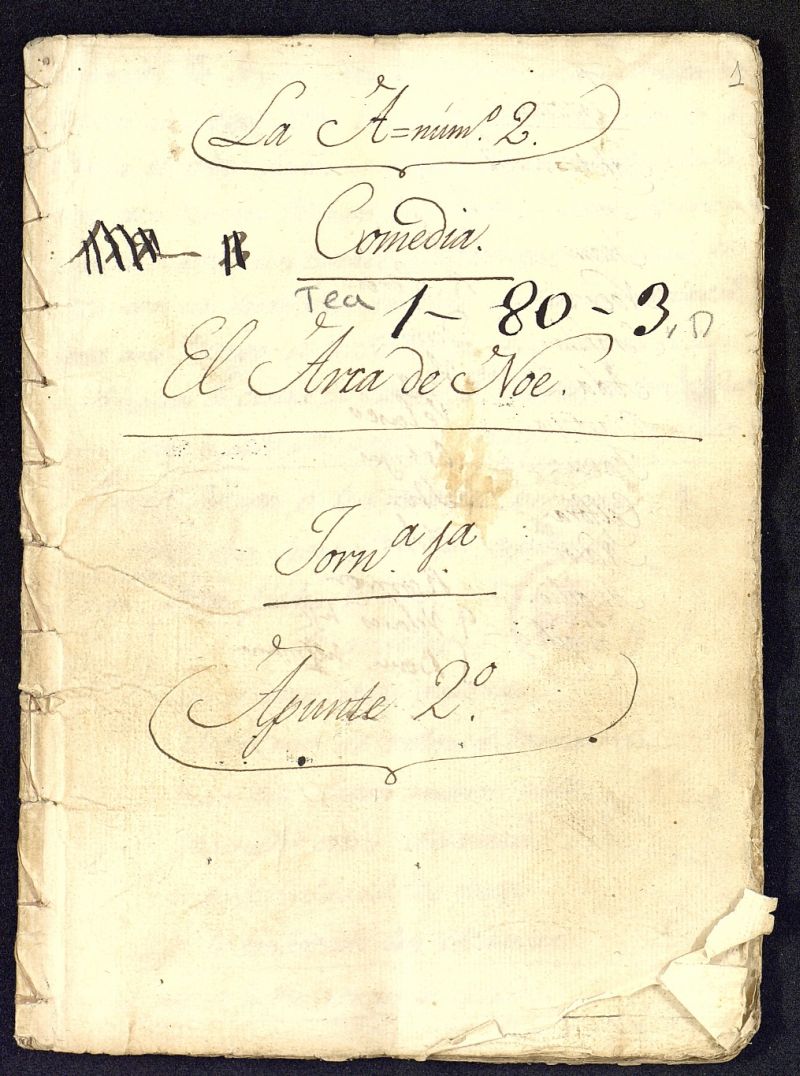 1
La A=núm.º 2.
Comedia.
Tea 1-80-3, D
El Arca de Noe.
Jorn.ª 1ª
Apunte 2º.